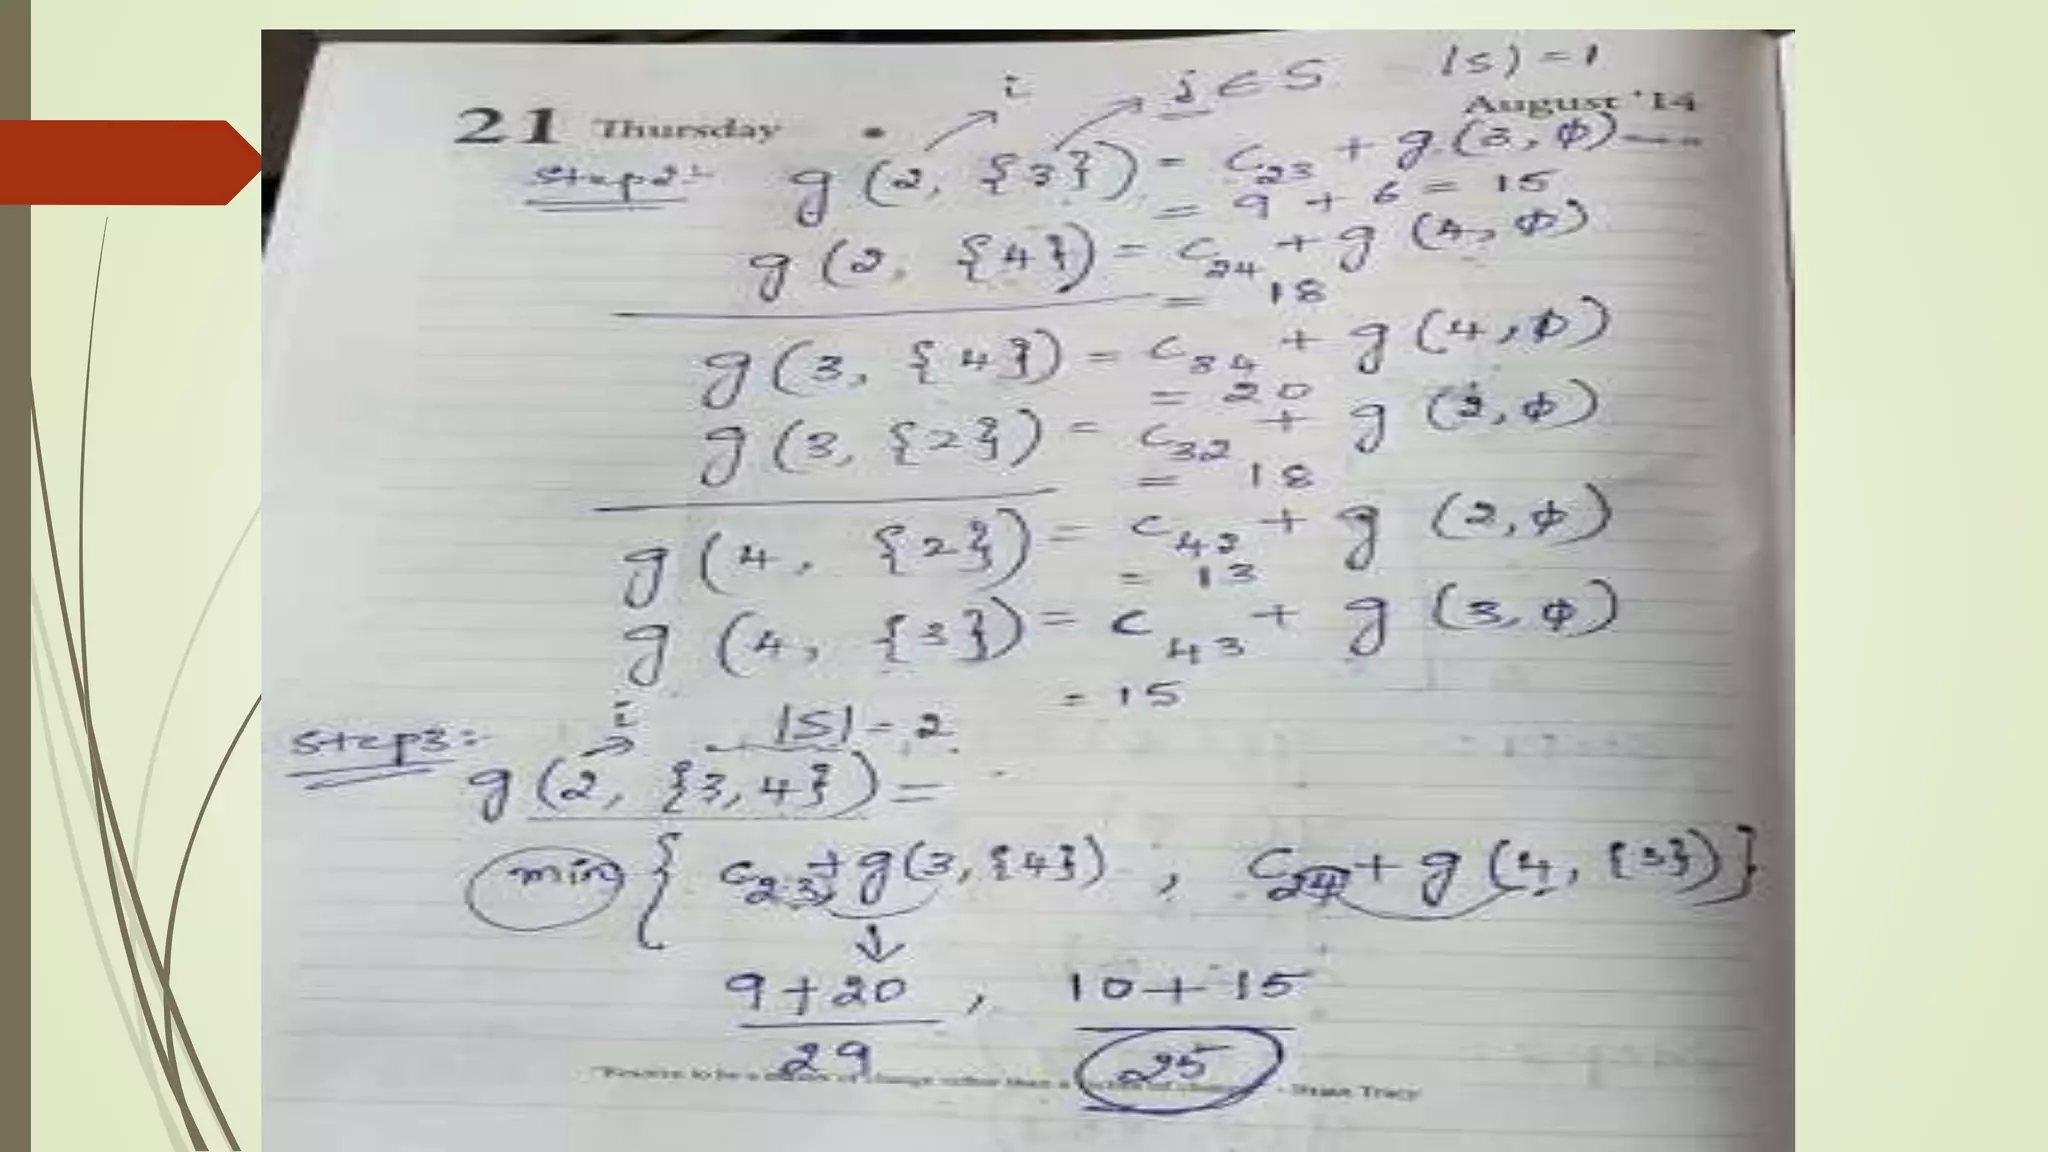 i j ∈ S |S| = 1
21 Thursday August '14
Step2:- g(2, {3}) = C23 + g(3, φ)
= 9 + 6 = 15
g(2, {4}) = C24 + g(4, φ)
= 18
g(3, {4}) = C34 + g(4, φ)
= 20
g(3, {2}) = C32 + g(2, φ)
= 18
g(4, {2}) = C42 + g(2, φ)
= 13
g(4, {3}) = C43 + g(3, φ)
= 15
Step3:- i |S| = 2
g(2, {3,4}) =
min { C23 + g(3, {4}) , C24 + g(4, {3}) }
9+20 , 10+15
29 25
"Resolve to be a of change rather than a of - Tracy